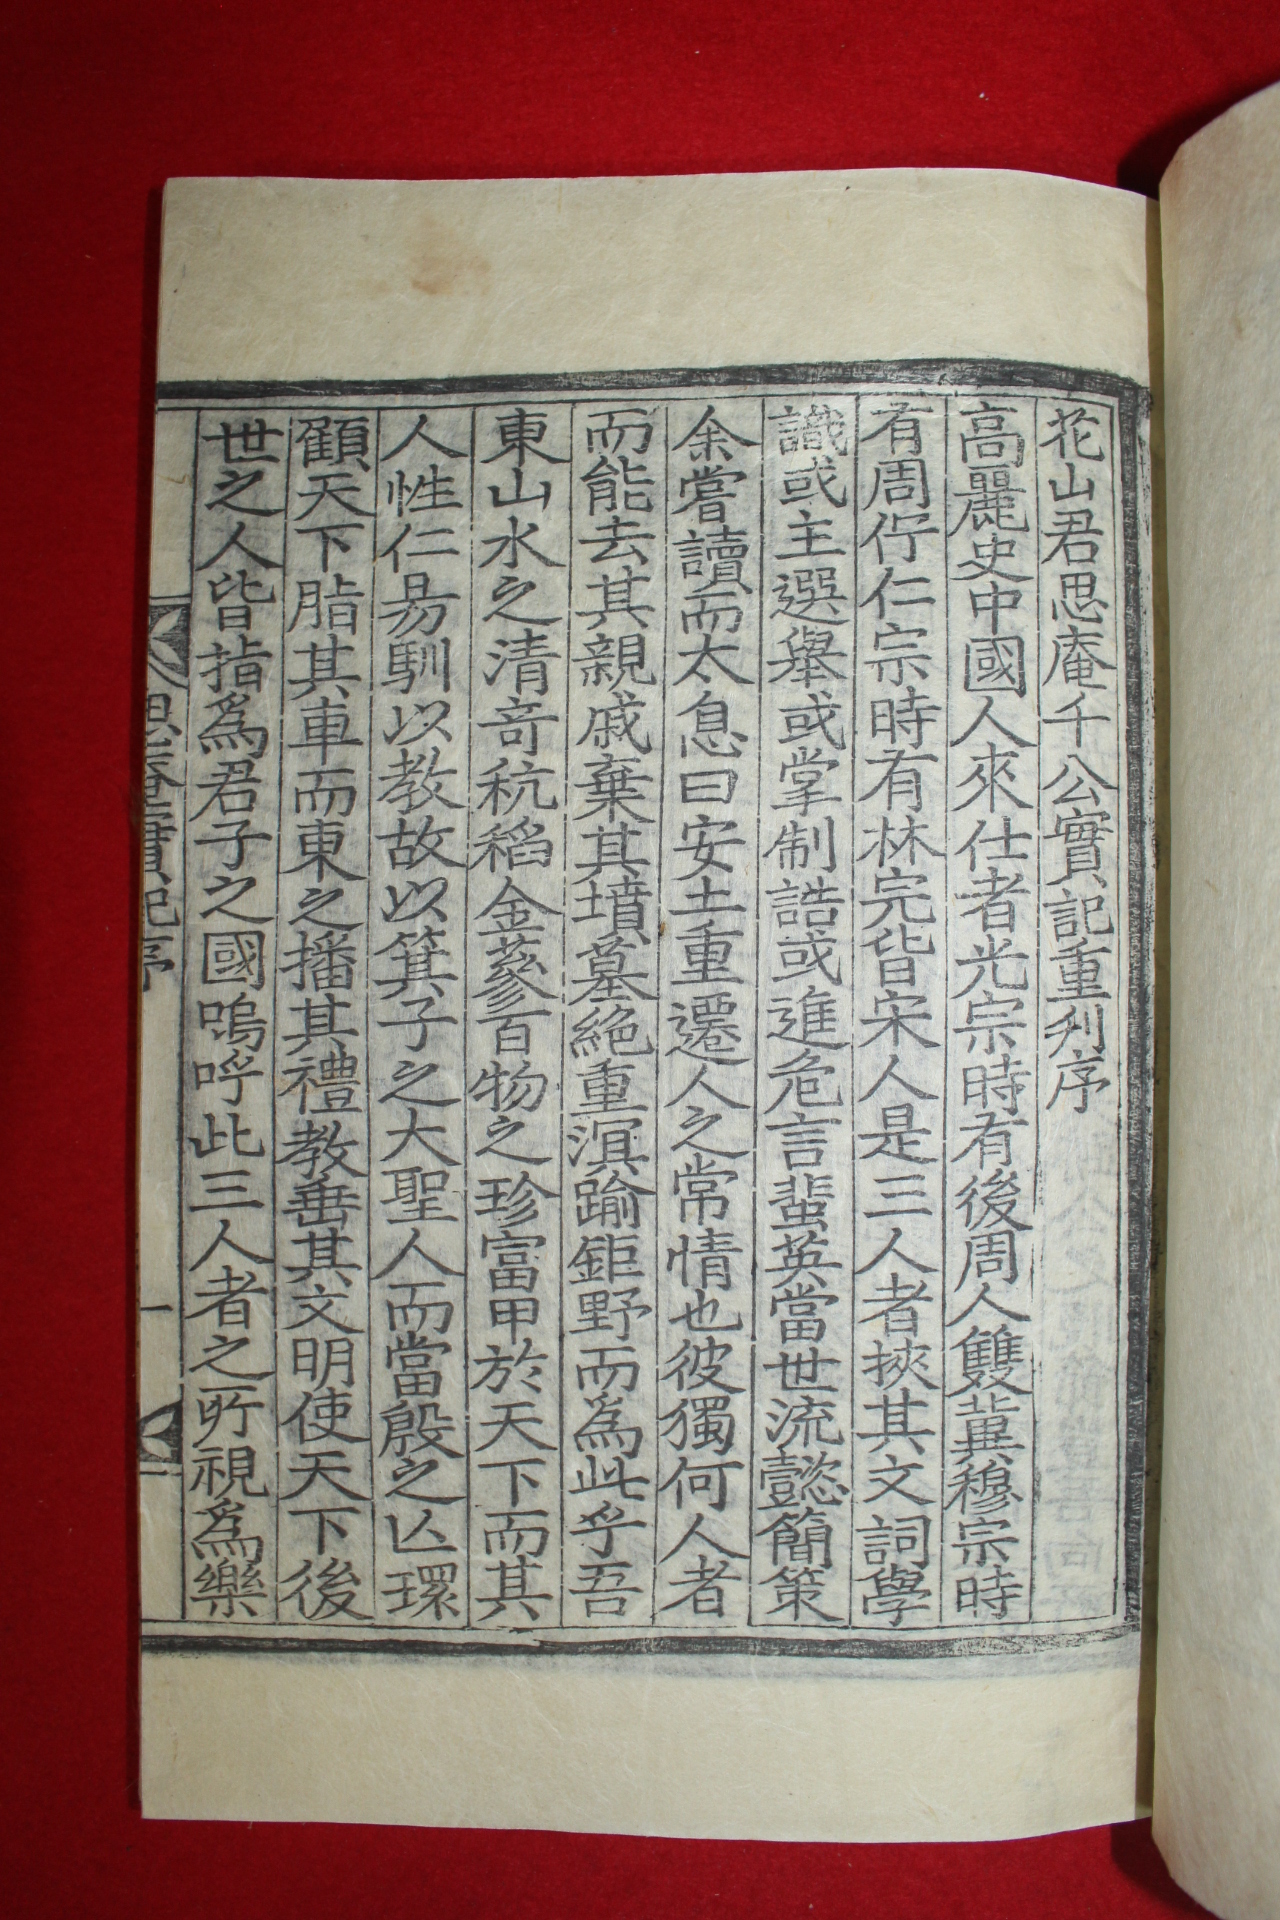 花山君思庵千公實記重刋序
高麗史中國人來仕者光宗時有後周人雙冀穆宗時
有周佇仁宗時有林完皆宋人是三人者挾其文詞學
識或主選舉或掌制誥或進危言蜚英當世流懿簡策
余嘗讀而太息曰安土重遷人之常情也彼獨何人者
而能去其親戚棄其墳墓絕重溟踰鉅野而爲此乎吾
東山水之清竒秔稻金蔘百物之珍富甲於天下而其
人性仁昜馴以教故以箕子之大聖人而當殷之亾環
顧天下脂其車而東之播其禮教垂其文明使天下後
世之人皆指爲君子之國嗚呼此三人者之所視爲樂
思庵實記序
一